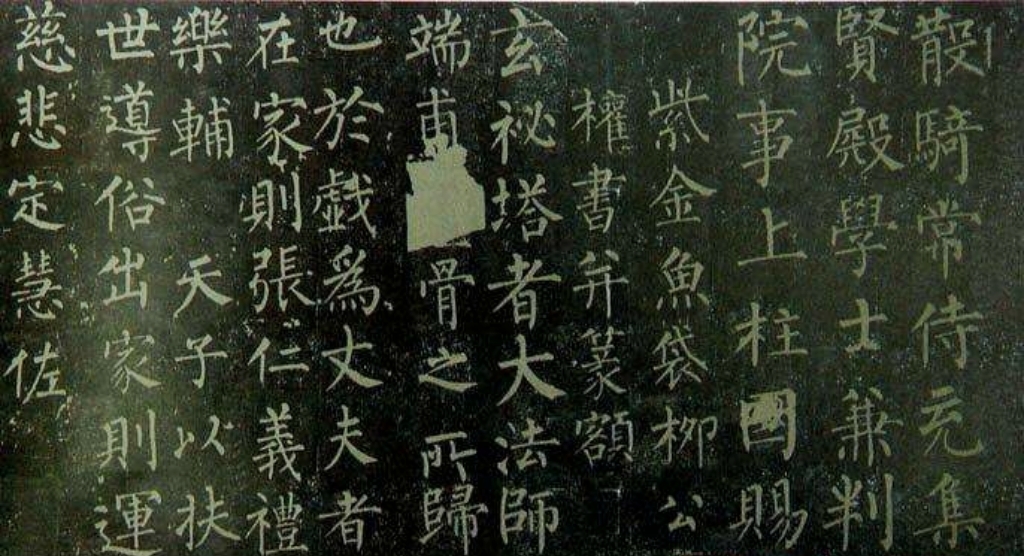 散騎常侍充集
賢殿學士兼判
院事上柱國賜
紫金魚袋柳公
權書并篆額
玄祕塔者大法師
端甫骨之所歸
也於戲為丈夫者
在家則張仁義禮
樂輔天子以扶
世導俗出家則運
慈悲定慧佐